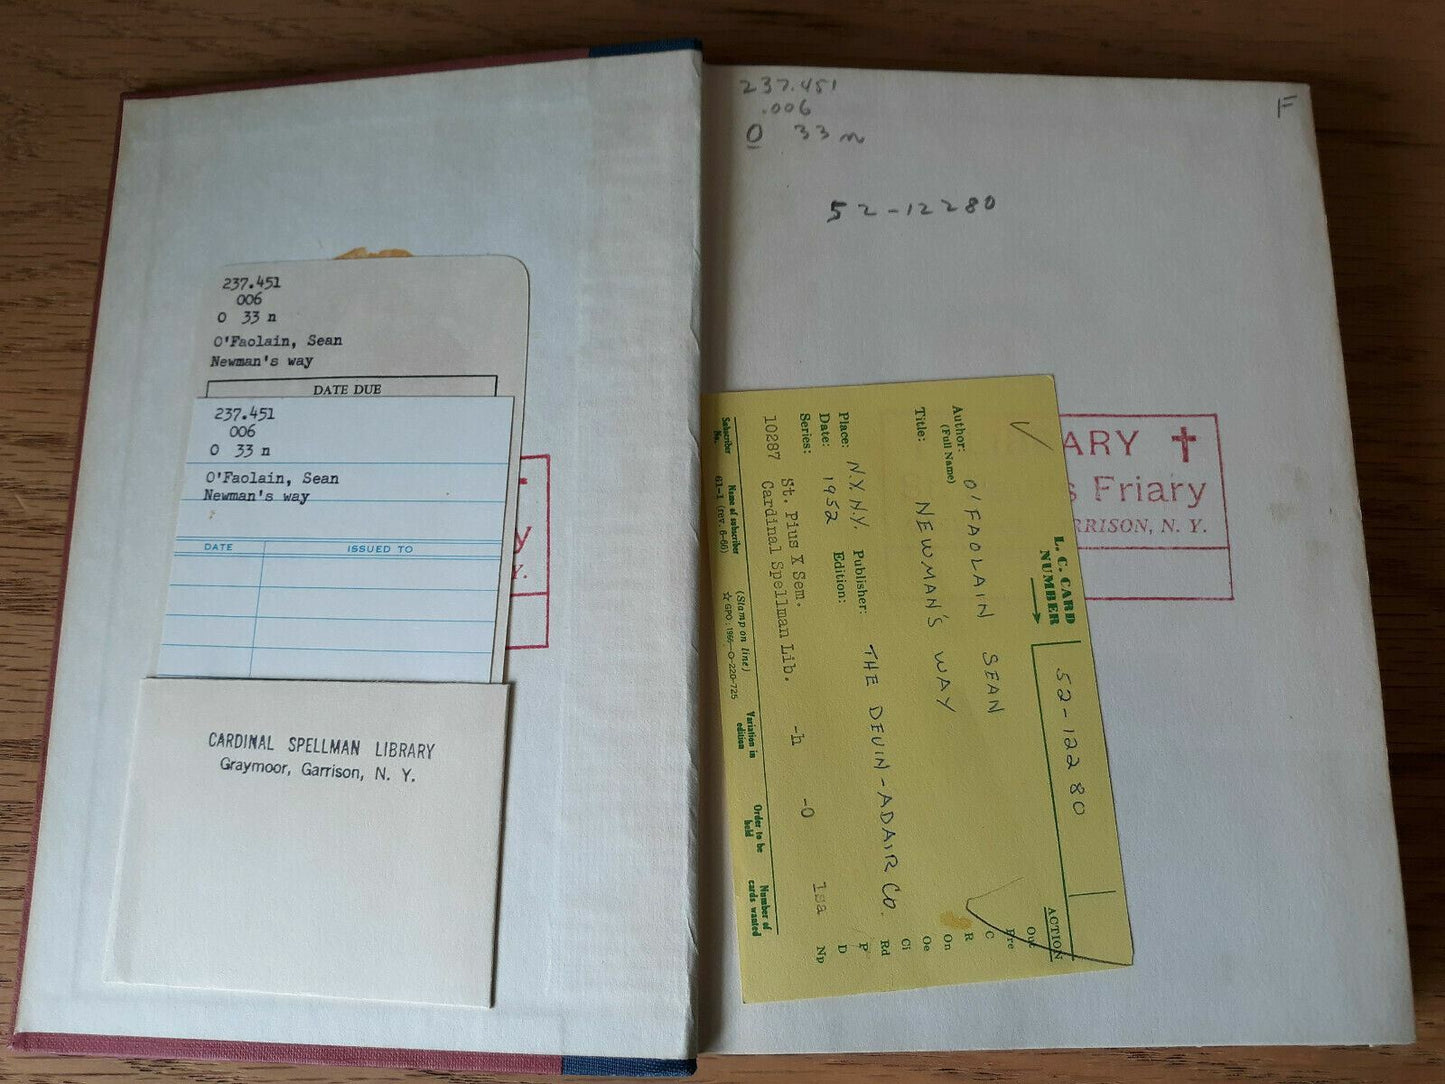 237.451
006
O 33 n
O'Faolain, Sean
Newman's way
DATE DUE
237.451
006
O 33 n
O'Faolain, Sean
Newman's way
DATE ISSUED TO
y
Y.
CARDINAL SPELLMAN LIBRARY
Graymoor, Garrison, N. Y.
237.451
.006
O 33 n
F
52-12280
ARY
s Friary
RRISON, N. Y.
L. C. CARD
NUMBER
52-12280
ACTION
Author: O'FAOLAIN SEAN
(Full Name)
Title: NEWMAN'S WAY
Place: N.Y. N.Y. Publisher: THE DEVIN-ADAIR CO.
Date: 1952 Edition:
Series:
St. Pius X Sem. -h -O lsa
10287 Cardinal Spellman Lib.
Subscriber No. Name of subscriber (Stamp on line) Variation in edition Order to be held Number of cards wanted
61-1 (rev. 6-66) ☆ GPO: 1966-O-220-725
Out
Pre
C
R
On
Oe
Ci
Rd
P
D
Np